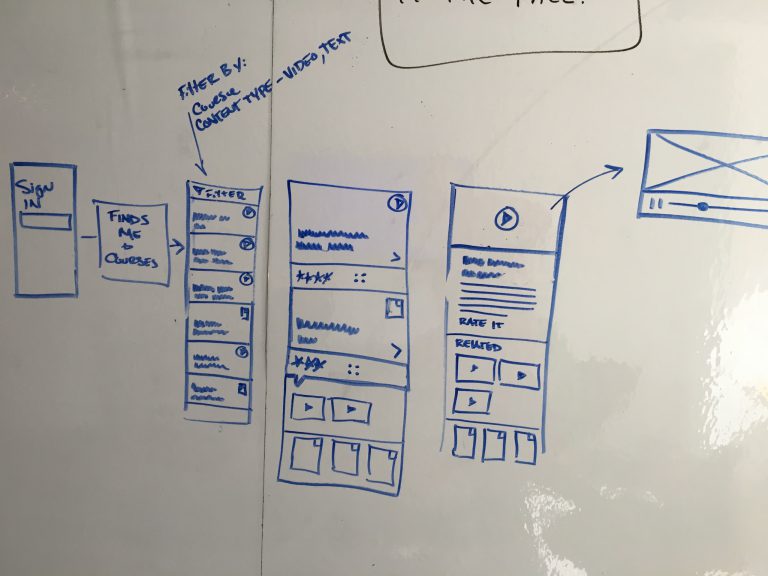 FilTER BY:
Course
CONTENT TYPE - VIDEO, TEXT
Sign
IN
FINDS
ME
+
COURSES
FilTER
RATE IT
RELATED